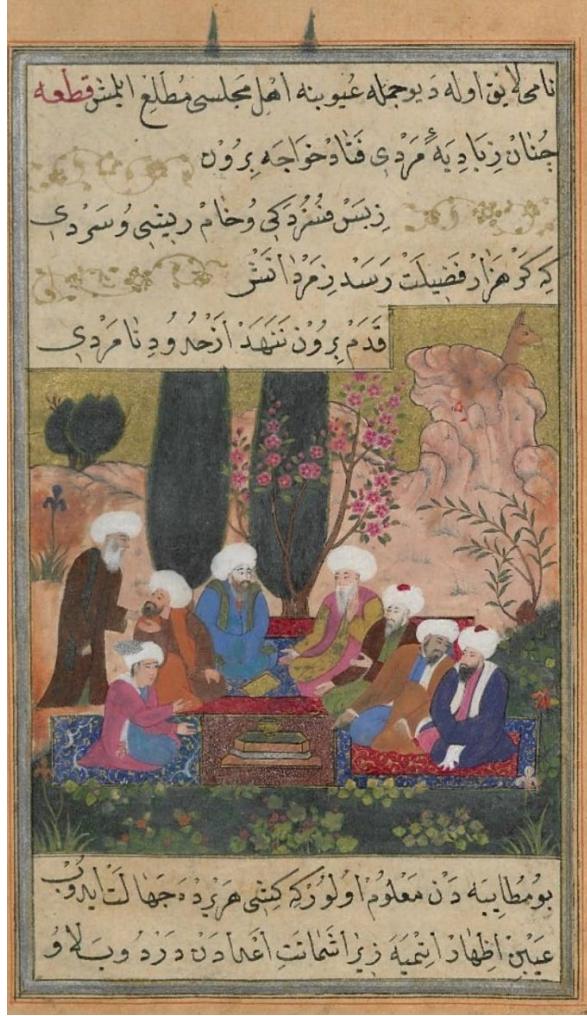 نامی لایق اوله دیو جمله عیوبینه اهل مجلسی مطلع ایلمش قطعه
چنان زبادیهٔ مردی فتاد خواجه برون
زبس فسردکی وخام ریشی وسردی
که کر هزار فضیلت رسد زمردانش
قدم برون ننهد از حدود نامردی
بو مطایبه دن معلوم اولورکه کشی هر یرده جهالت ایدوب
عیبن اظهار اتمیه زیرا شماتت اعدادن درد وبلا و